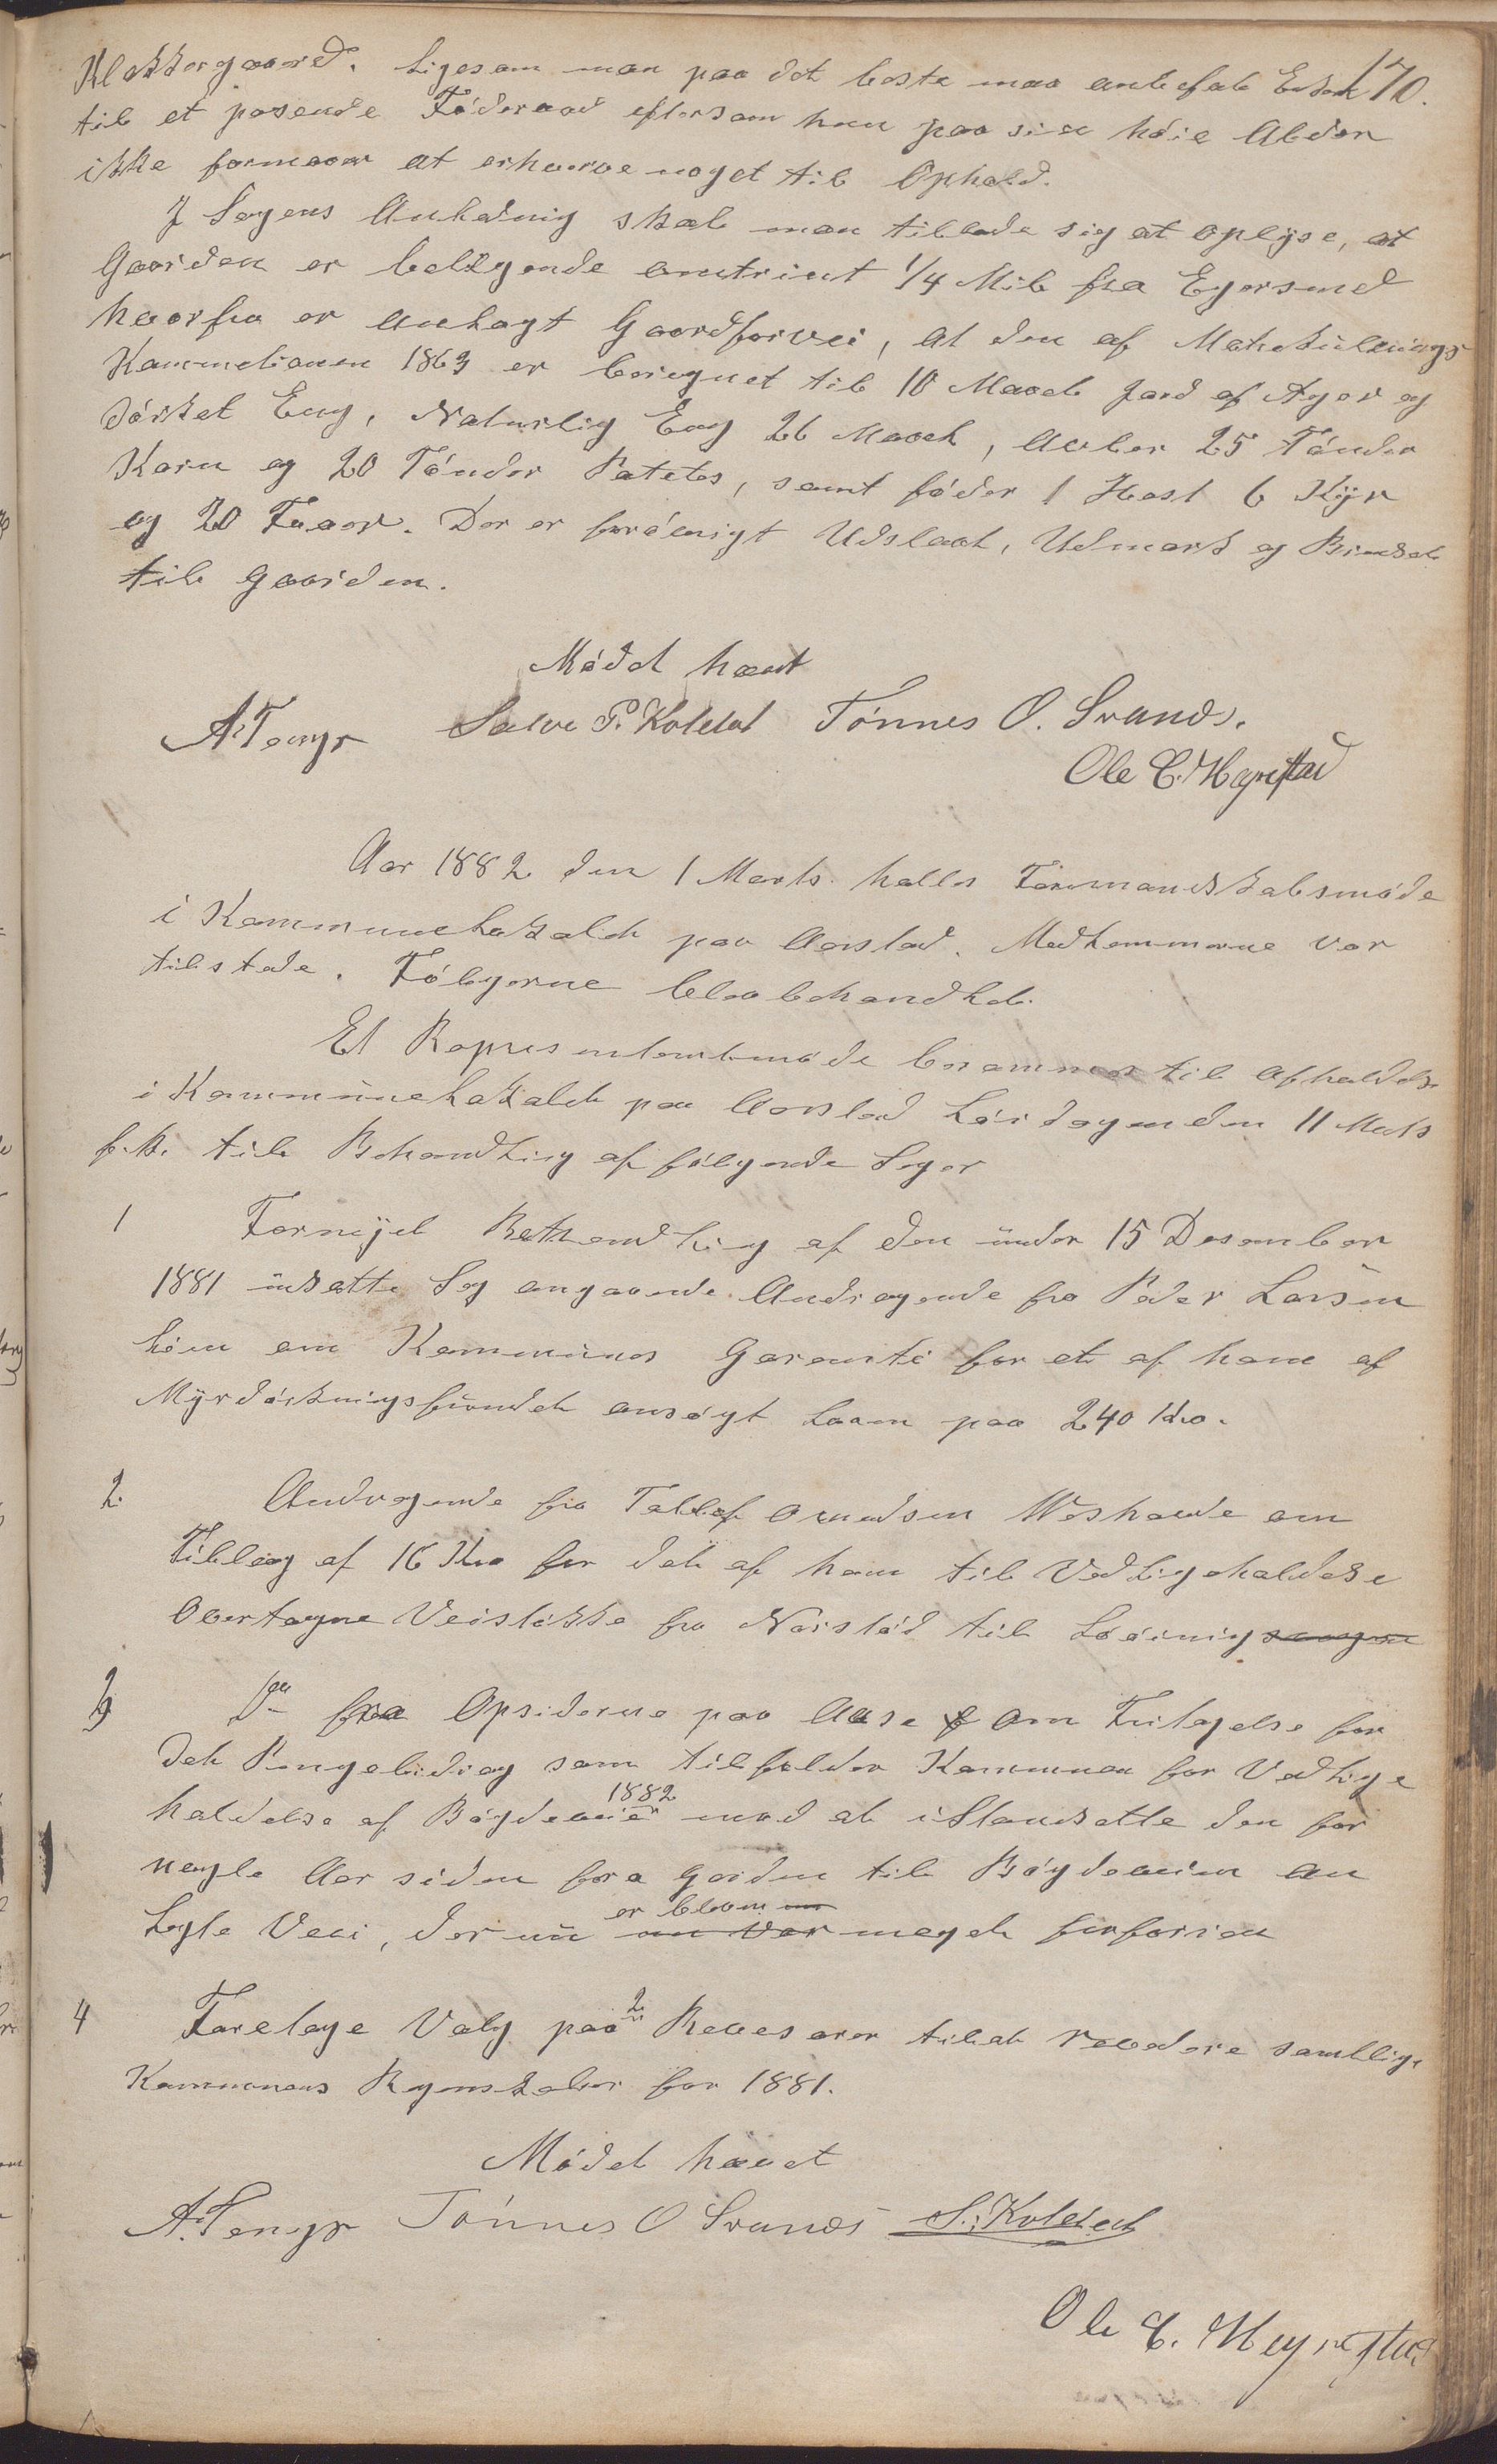 170.
Klokkergaard. Ligesom man paa det beste maa anbefale Enken
til et pasende Föderaad eftersom hun paa sin höie Alder
ikke formaar at erhverve noget til Ophold.
I Sagens Anledning skal man tillade sig at oplyse, at
Gaarden er beligende omtrient 1/4 Mil fra Egersund
hvorfra er anlagt Gaardforvei, at den af Matrikulerings
Kommetionen 1863 er beregnet til 10 Maal Jord af Ager og
dörket Eng, Naturlig Eng 26 Maal, Avler 25 Tönder
Korn og 20 Tönder Potetes, samt föder 1 Hest 6 Kÿr
og 20 Faaer. Der er fornöinigt Udslaat, Udmark og Brendsel
til Gaarden.
Mödet hævt
A. Tengs Salve P. Koldal Tönnes O. Svanes.
Ole C. Hegrestad
Aar 1882 den 1 Marts. holtes Formandskabsmöde
i Kommunelokalet paa Aarstad. Medlemmerne var
tilstede. Fölgerne blev behandlet.
Et Represententmöde berammes til Afholdelse
i Kommünelokalet paa Aarstad Lördagen den 11 Marts
f. k. til Behandling af fölgende Sager
1 Fornÿet Behandling af den ünder 15 Desember
1881 üdsatte Sag angaaende Andragende fra Peder Larsen
om Kommünens Garanti for et af ham af
Mÿrdörkningsfondet ansögt Laan paa 240 Kro.
2. Andragende fra Tollef Omundsen Veshovde om
Tillæg af 16 Kro for det af ham til Vedligeholdelse
Overtagne Veistökke fra Nörstöd til Lööining
3 Do fra Opsiderne paa Aase om Fritagelse for
det Pengebidrag som tilfalder Kommunen for Vedlige
holdelse af Bögdeveier 1882 mod at iStandsette den for
nogle Aar siden fra Gorden til Bögdeveien an
Lagte Veei, der nü er bleven meget forfarien
4 Foretage Valg paa 2 Revesorer til at revedere samtlige
Kommunens Regnskaber for 1881.
Mödet hævet
A. Tengs Tönnes O Svanes S. Koldal
Ole C. Hegrestad